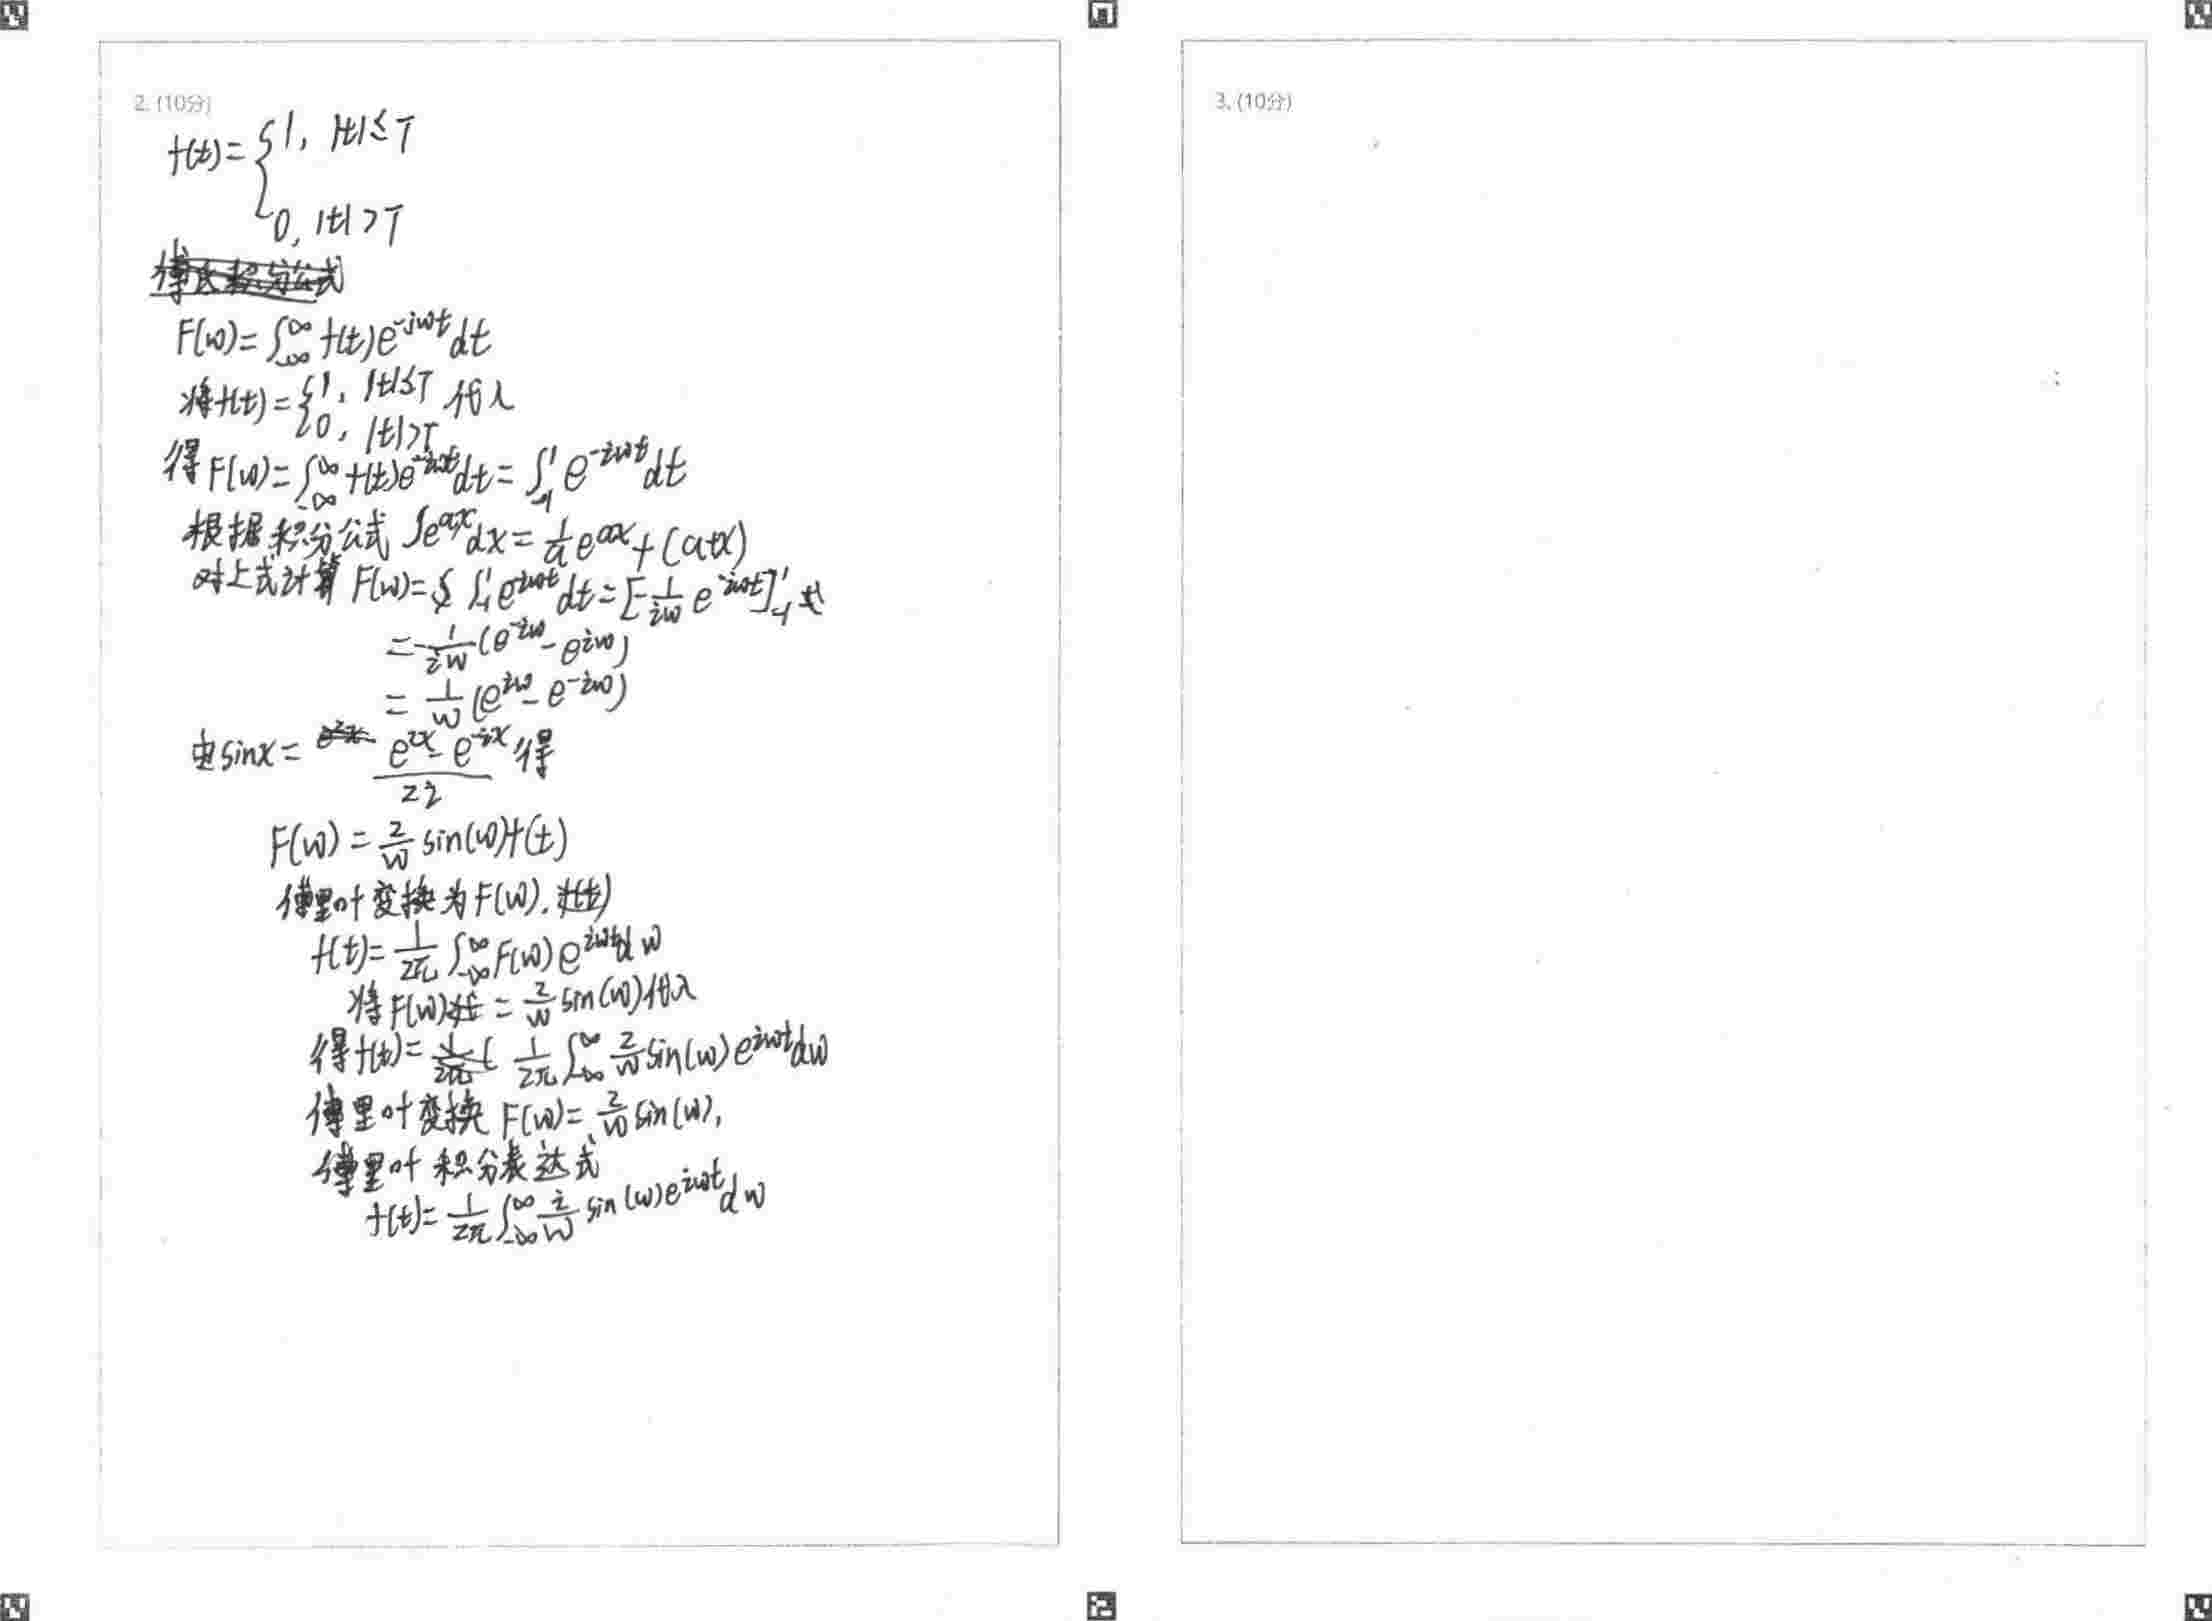 2. (10分)
f(t)= { 1, |t|≤T
0, |t|>T
F(w)=∫_{-∞}^{∞} f(t)e^{-jwt}dt
将f(t)= { 1, |t|≤T 代入
0, |t|>T
得F(w)=∫_{-∞}^{∞} f(t)e^{-iwt}dt=∫_{-1}^{1} e^{-iwt}dt
根据积分公式 ∫e^{ax}dx=\frac{1}{a}e^{ax}+(a+x)
对上式计算 F(w)= ∫_{-1}^{1} e^{-iwt}dt=[-\frac{1}{iw}e^{-iwt}]_{-1}^{1}
=-\frac{1}{iw}(e^{-iw}-e^{iw})
=\frac{1}{w}(e^{iw}-e^{-iw})
由sinx=\frac{e^{ix}-e^{-ix}}{2i} 得
F(w)=\frac{2}{w}sin(w)f(t)
傅里叶变换为F(w).
f(t)=\frac{1}{2π}∫_{-∞}^{∞} F(w)e^{iwt}dw
将F(w)=\frac{2}{w}sin(w)代入
得f(t)= \frac{1}{2π}∫_{-∞}^{∞} \frac{2}{w}sin(w)e^{iwt}dw
傅里叶变换 F(w)=\frac{2}{w}sin(w),
傅里叶积分表达式
f(t)=\frac{1}{2π}∫_{-∞}^{∞} \frac{2}{w}sin(w)e^{iwt}dw
3. (10分)